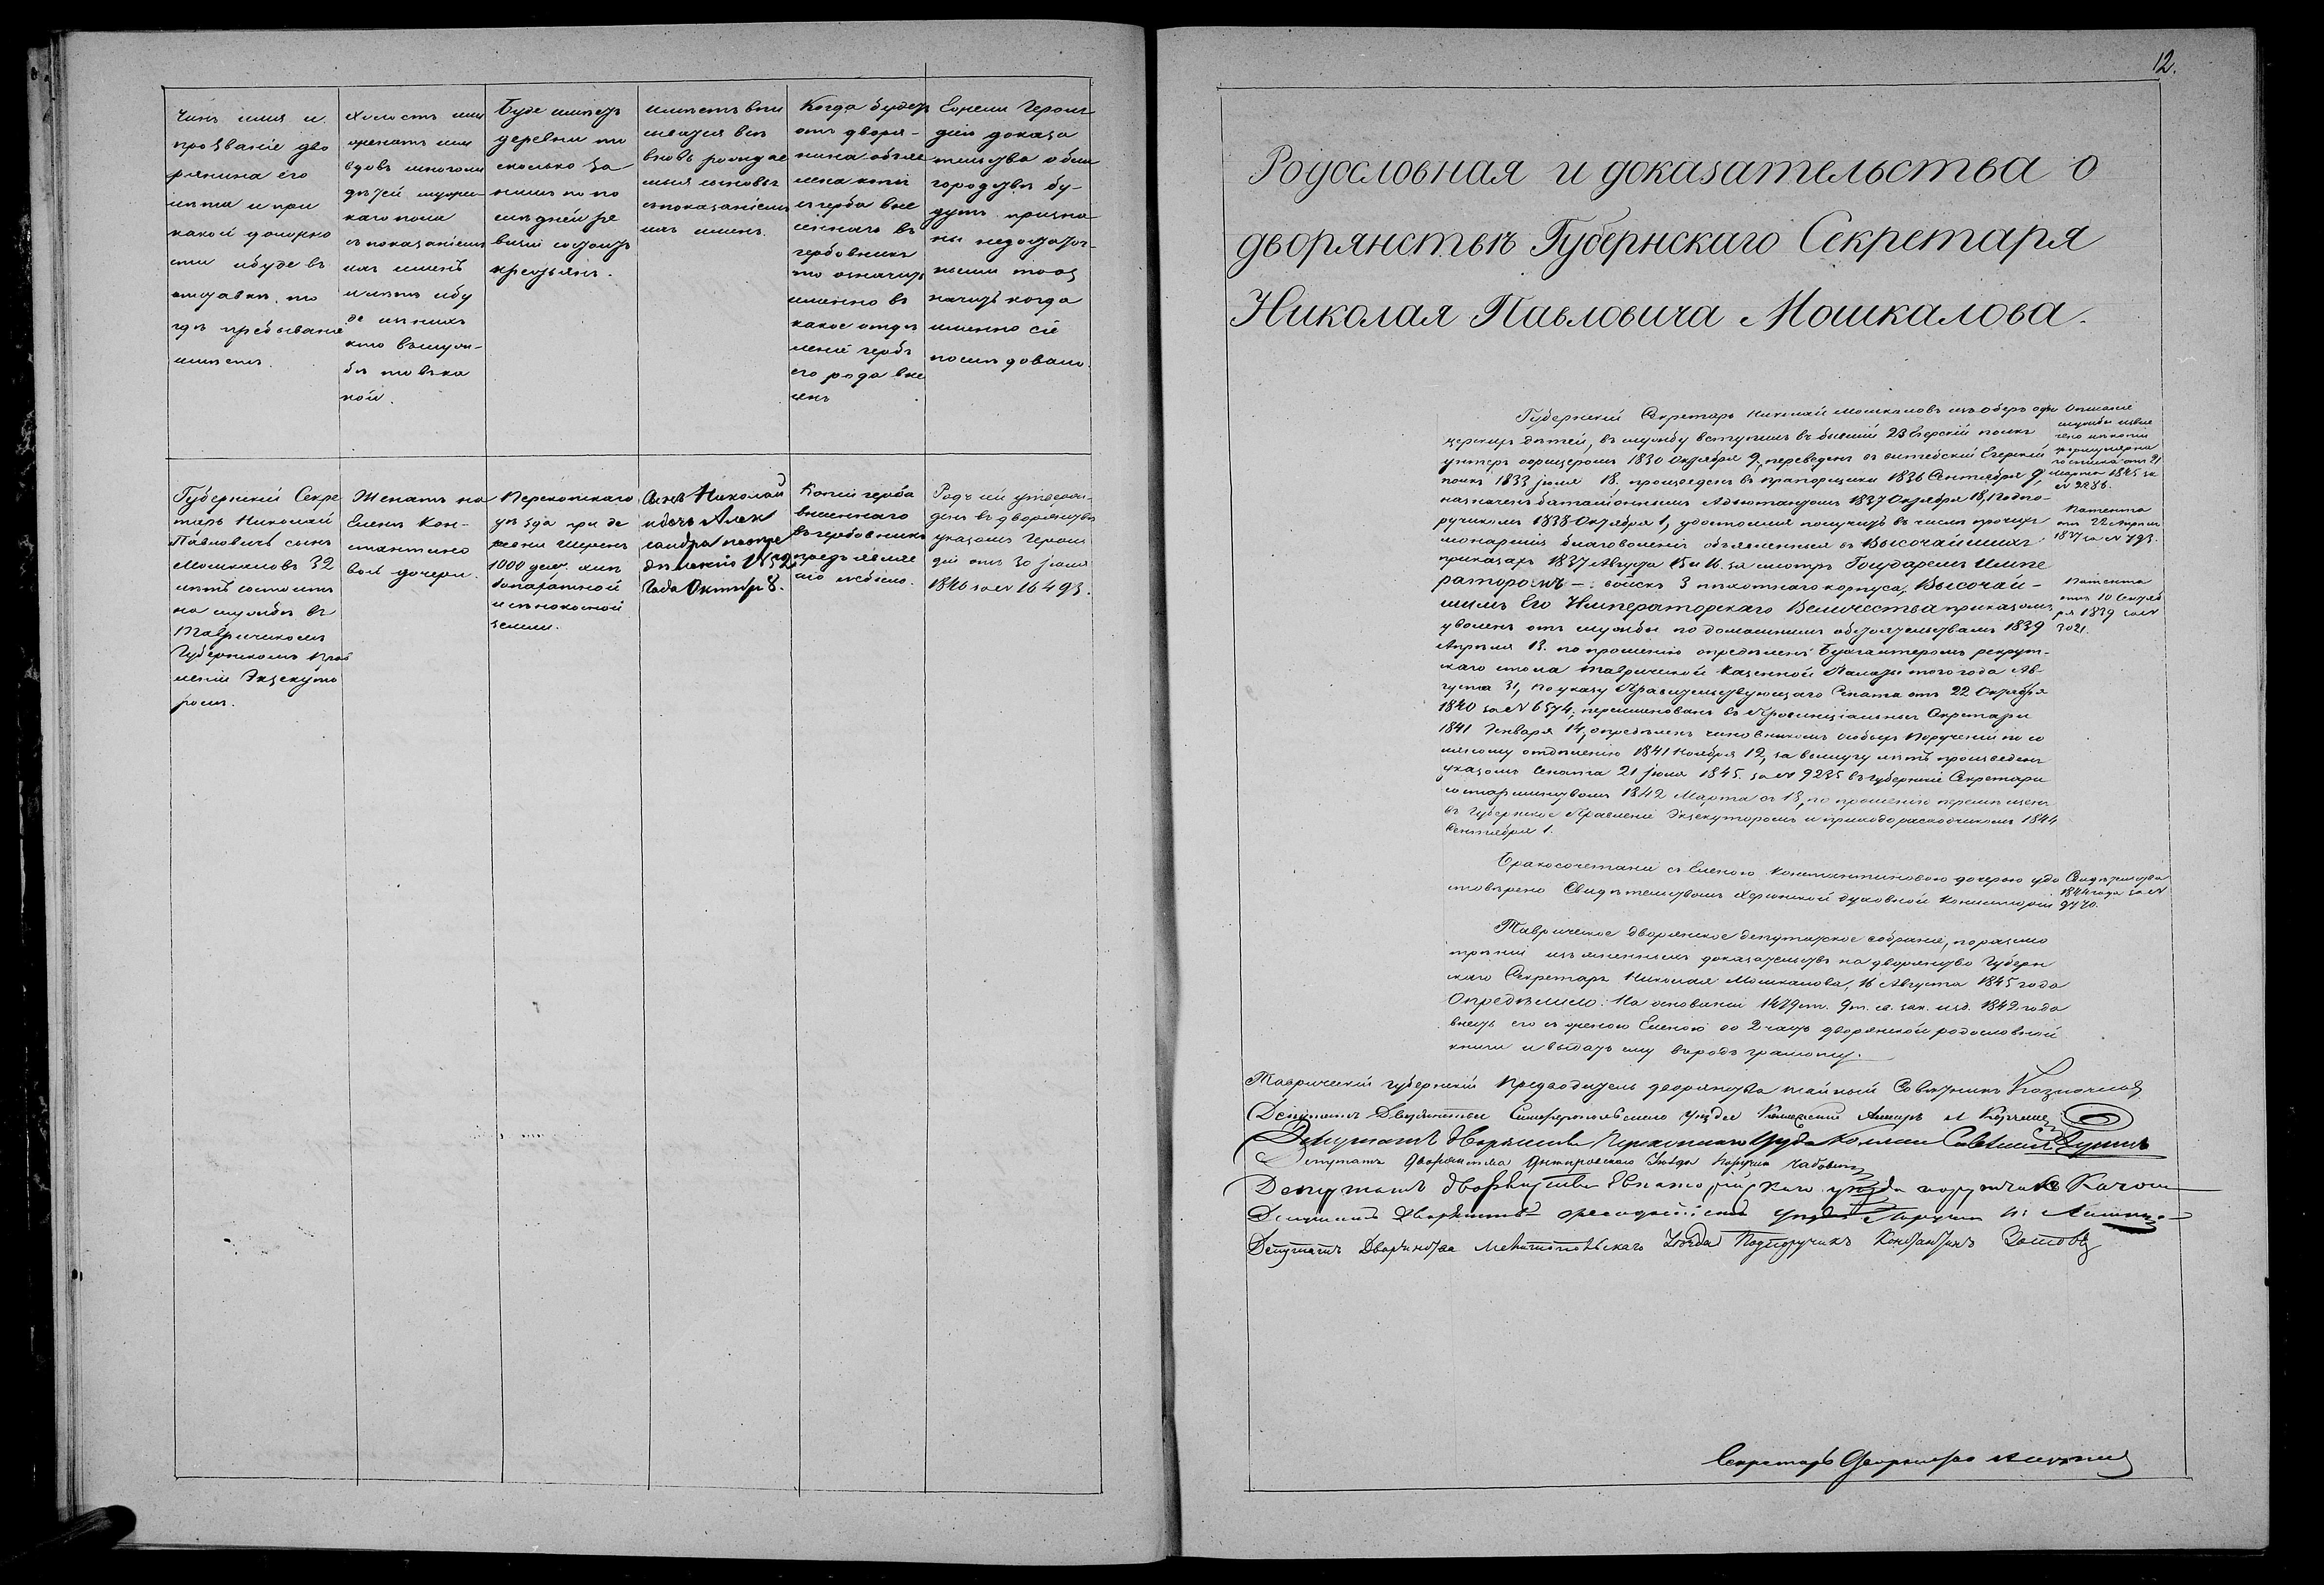 Чинъ имя и
прозваніе дво
рянина его
лѣта и при
какой должно
сти и буде въ
отставкѣ, то
гдѣ пребываніе
имѣетъ.
Холостъ или
женатъ или
вдовъ и много ли
дѣтей мужес-
каго пола
съ показаніемъ
ихъ именъ
и лѣтъ и бу
де изъ нихъ
кто въ служ-
бѣ то въ ка
кой.
Буде имѣетъ
деревни то
сколько за
нимъ по по
слѣдней ре
визіи состоитъ
крестьянъ.
имѣетъ впи
сываться всѣ
вновь рождае
мые сыновья
съ показаніемъ
ихъ именъ.
Когда будетъ
отъ дворя-
нина объяв
лена копія
съ герба вне
сеннаго въ
гербовникъ
то означить
именно въ
какое отдѣ
леніе гербъ
его рода вне
сенъ
Ежели Герольд
діею доказа
тельства о бла
городствѣ бу-
дутъ призна
ны недостаточ-
ными то оз
начить когда
именно сіе
послѣдовало.
Губернскій Секре
тарь Николай
Павловичъ сынъ
Мошкаловъ 32
лѣтъ состоитъ
на службѣ въ
Таврическомъ
Губернскомъ Прав
леніи Экзекуто
ромъ.
Женатъ на
Еленѣ Кон-
стантино
вой дочери.
Перекопскаго
уѣзда при де
ревни
1000 дес.
и сѣнокосной
земли.
Сынъ Николай
и дочь Алек
сандра по опре
дѣленію 1852
Года Октября 8.
Копіи герба
внесеннаго
въ гербовникъ
предъявляе
мо не было.
Родъ сей утверж-
денъ въ дворянствѣ
указомъ Герольд
діи отъ 30 Іюля
1846 за № 16493.
12.
Родословная и доказательства о
дворянствѣ Губернскаго Секретаря
Николая Павловича Мошкалова.
Губернскій Секретарь Николай Мошкаловъ изъ оберъ офи
церскихъ дѣтей, въ службу вступилъ въ бывшій 23 Егерскій полкъ
унтеръ офицеромъ 1830 Октября 9, переведенъ въ витебскій Егерскій
полкъ 1833 Іюля 18. произведенъ въ прапорщики 1836 Сентября 9,
назначенъ баталіоннымъ Адъютантомъ 1837 Октября 18, Подпо-
ручикомъ 1838 Октября 1, удостоился получить въ числѣ прочихъ
монаршія благоволенія объявленныя въ Высочайшихъ
приказахъ 1837 Августа 15 и 16. за смотръ Государемъ Импе
раторомъ — войскъ 3 пѣхотнаго корпуса, Высочай-
шимъ Его Императорскаго Величества приказомъ
уволенъ отъ службы по домашнимъ обстоятельствамъ 1839
Апрѣля 13. по прошенію опредѣленъ Бухгалтеромъ рекрут-
скаго стола таврической Казенной Палаты того года Ав-
густа 31, По указу Правительствующаго Сената отъ 22 Октября
1840 за № 6574, переименованъ въ Провинціальные Секретари
1841 Января 14, опредѣленъ чиновникомъ Особыхъ Порученій по со
ляному отдѣленію 1841 Ноября 12, за выслугу лѣтъ произведенъ
указомъ Сената 21 Іюня 1845. за № 9235 въ Губернскіе Секретари
со старшинствомъ 1842 Марта съ 13, по прошенію перемѣщенъ
въ Губернское Правленіе Экзекуторомъ и приходорасходчикомъ 1844
Сентября 1.
Описаніе
службы извле
чено изъ копіи
формулярна
го списка отъ 21
Марта 1845 за
№ 2286.
Патента
отъ 22 Апрѣля
1837 за № 793.
Патента
отъ 10 Сентяб
ря 1839 за №
3021.
Бракосочетаніе съ Еленою Константиновою дочерью удо
стовѣрено Свидѣтельствомъ Херсонской духовной Консисторіи
Свидѣтельства
1844 года за №
9470.
Таврическое дворянское депутатское собраніе, по разсмо
трѣніи изъясненныхъ доказательствъ на дворянство Губерн
скаго Секретаря Николая Мошкалова, 16 Августа 1845 года
Опредѣлило: На основаніи 1479 ст. 9 т. св. зак. изд. 1842 года
внесть его съ женою Еленою во 2 часть дворянской родословной
книги и выдать ему въ родъ грамоту.
Таврическій губернскій Предводитель дворянства тайный Совѣтникъ Казначеевъ
Депутатъ Дворянства Симферопольскаго Уѣзда
Депутатъ Дворянства Перекопскаго Уѣзда
Депутатъ дворянства Днѣпровскаго Уѣзда Поручикъ
Депутатъ дворянства Евпаторійскаго уѣзда поручикъ
Депутатъ Дворянства Феодосійскаго уѣзда
Депутатъ Дворянства Мелитопольскаго Уѣзда Подпоручикъ Константинъ Зотовъ
Секретарь Дворянства